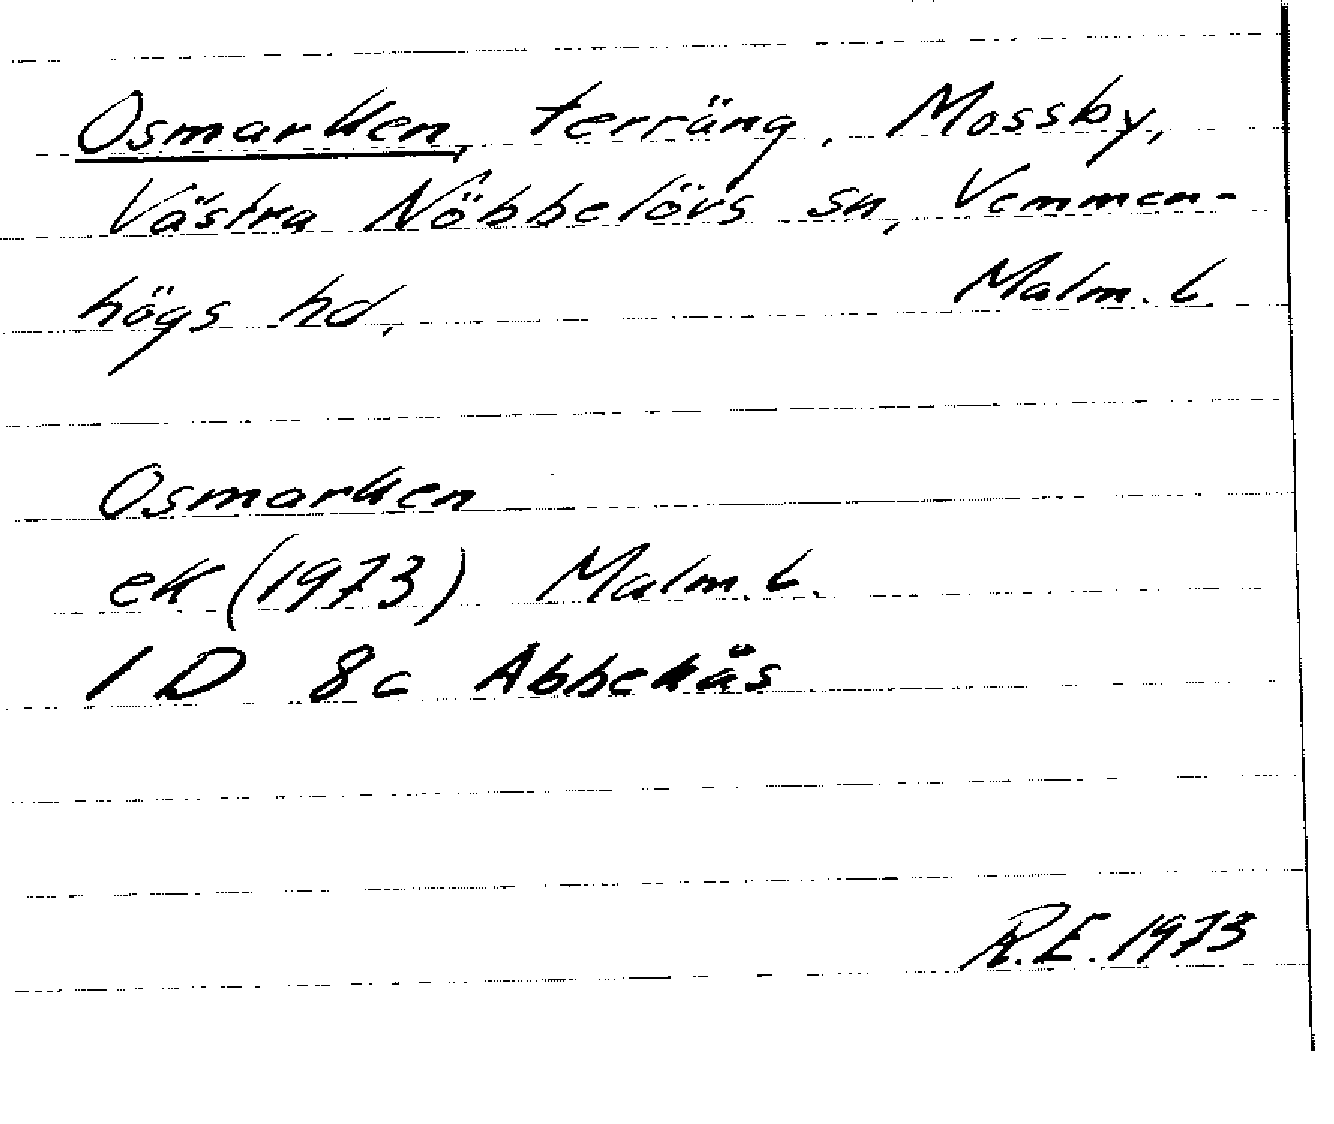 Osmarken, terräng, Mossby,
Västra Nöbbelövs sn, Vemmen-
högs hd. Malm. L.
Osmarken
ek (1973) Malm. L.
1 D 8c Abbekås
R.E. 1973